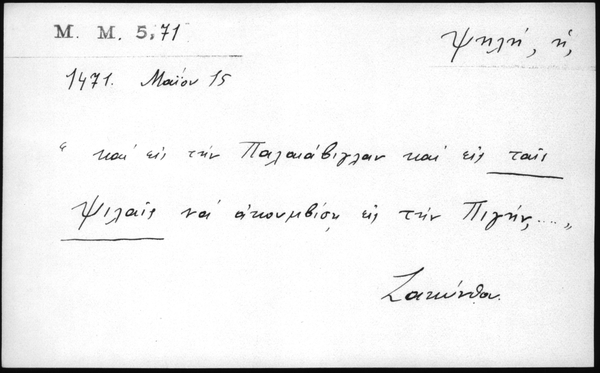 M. M. 5,71
Ψηλή, ἡ,
1471. Μαΐου 15
" καί εἰς τήν Παλαιάβιγλαν καί εἰς ταῖς
Ψιλαῖς νά ἀκουμβίσῃ εἰς τήν Πιγήν, .... "
Ζακύνθα.